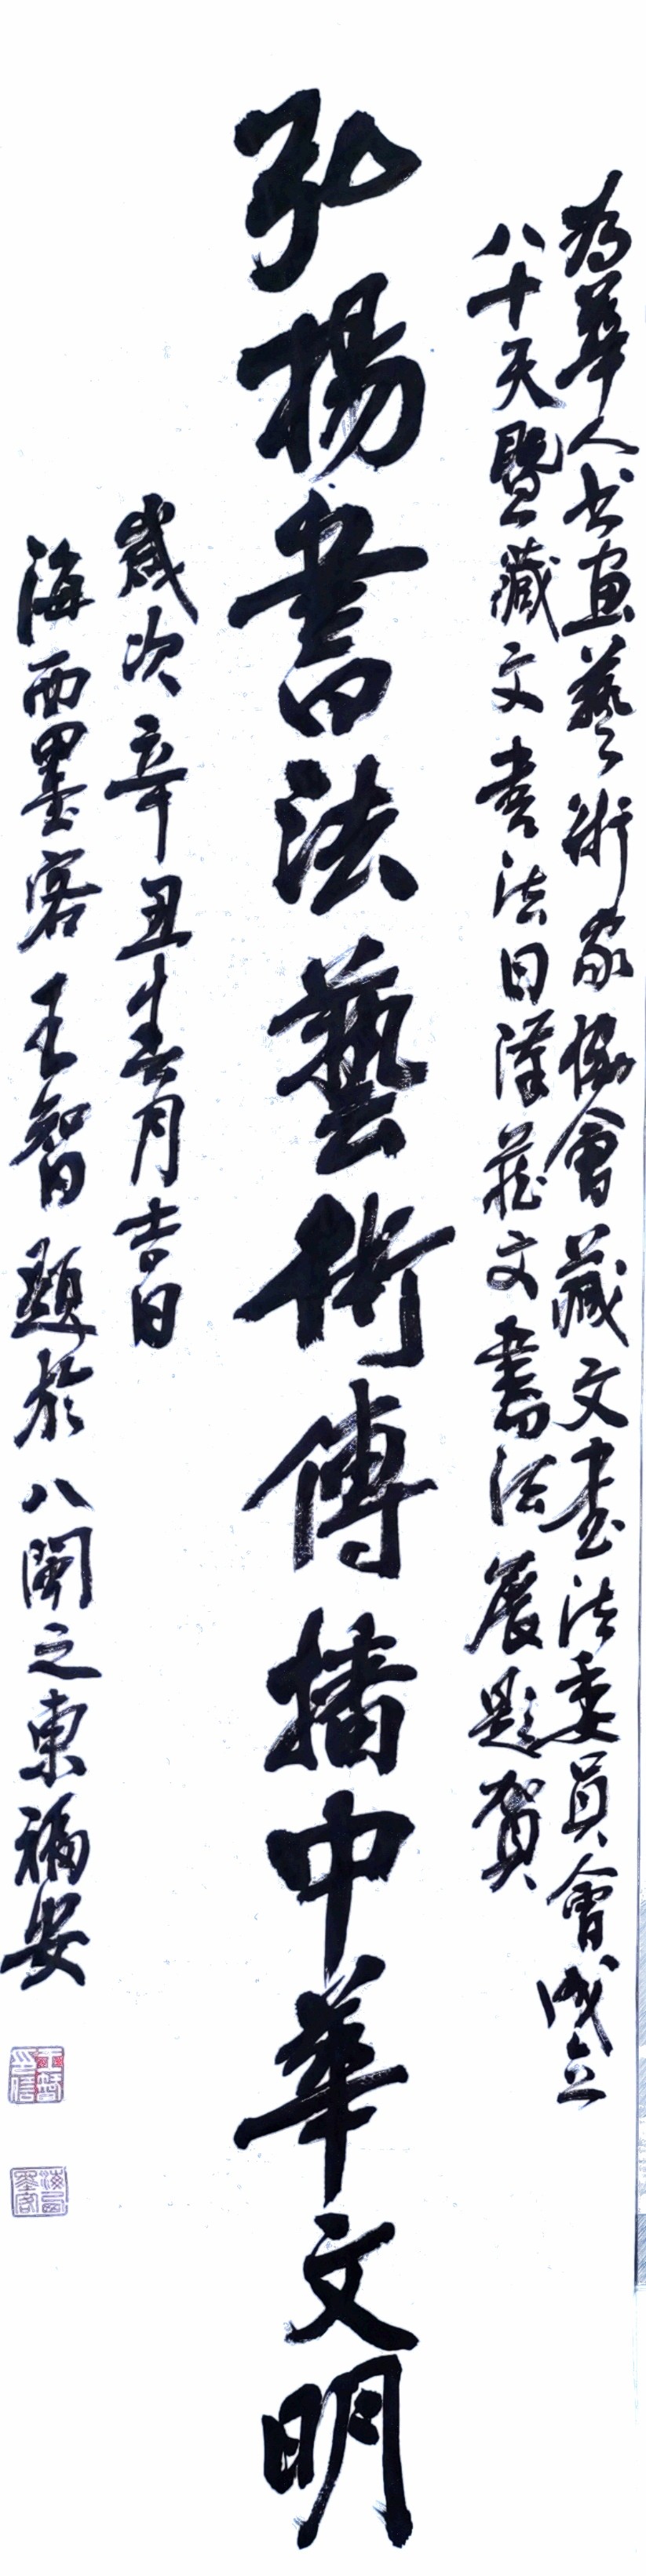 為華人书画藝術家協會藏文书法委員會成立
八十天暨藏文書法日漢藏文書法展題賀
弘揚書法藝術傳播中華文明
歲次辛丑春月吉日
海西墨客王智題於八閩之東福安
海西墨客